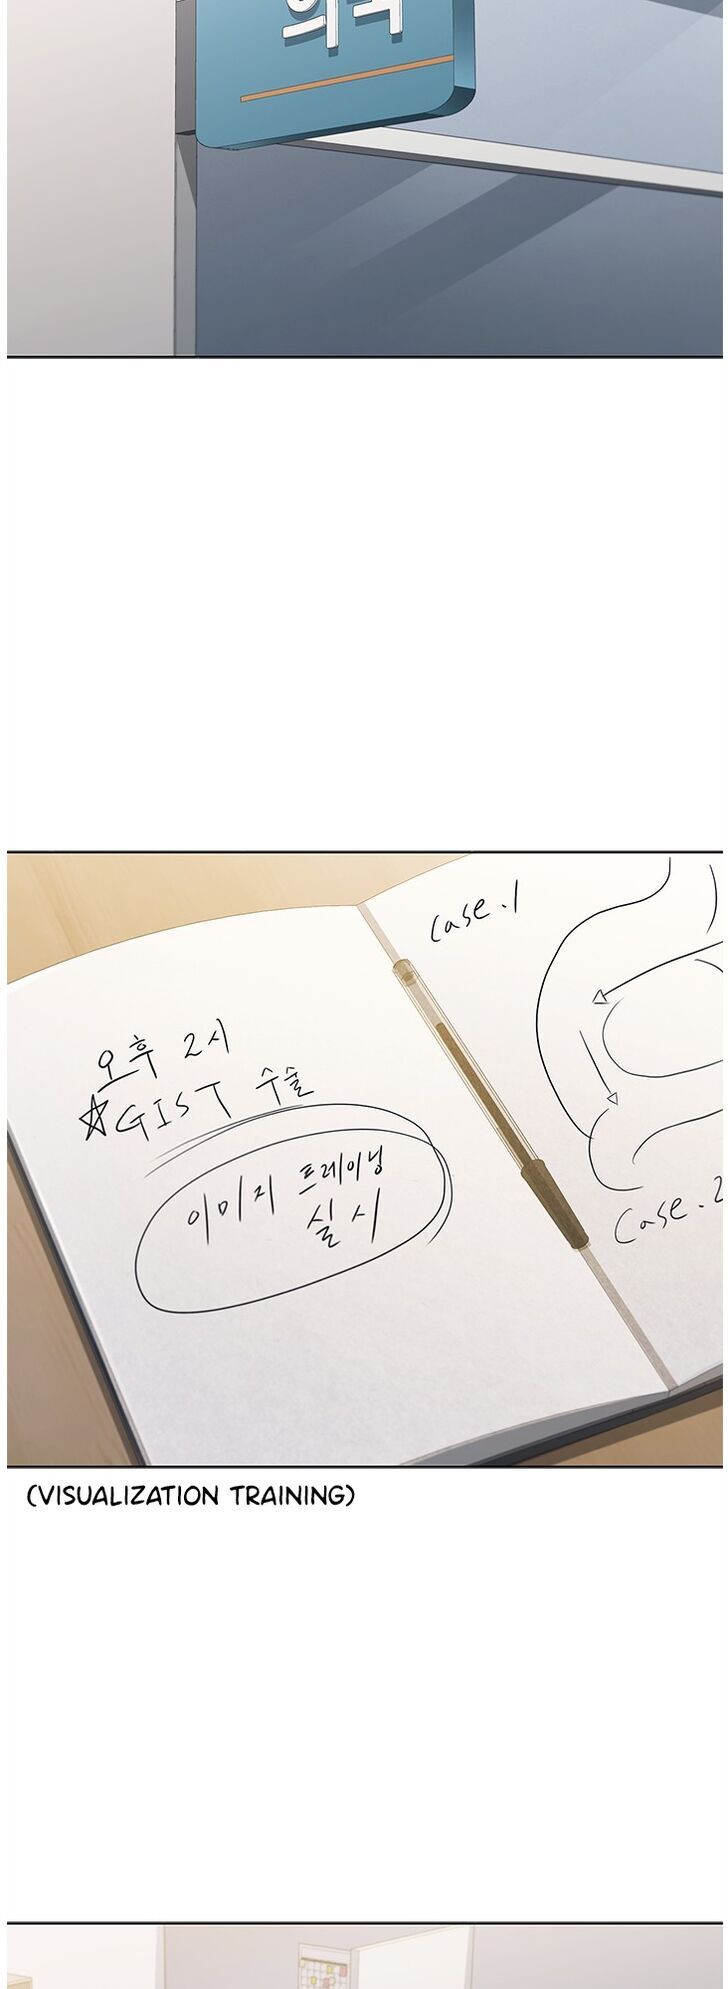 의국
오후 2시
☆GIST 수술
이미지 트레이닝
실시
case.1
Case.2
(VISUALIZATION TRAINING)